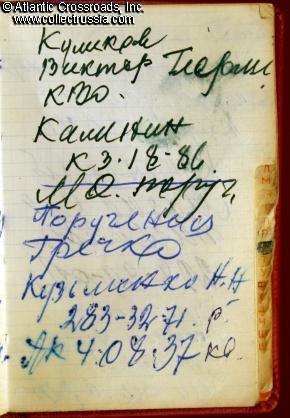 © Atlantic Crossroads, Inc.
www.collectrussia.com
Куликов
Виктор
КВО.
Калинин
К3-18-86
МО. поруч.
Поручения
Гречко
Кузьменко Н.Н
283-32-71. р.
АК 4.08.37 кв.